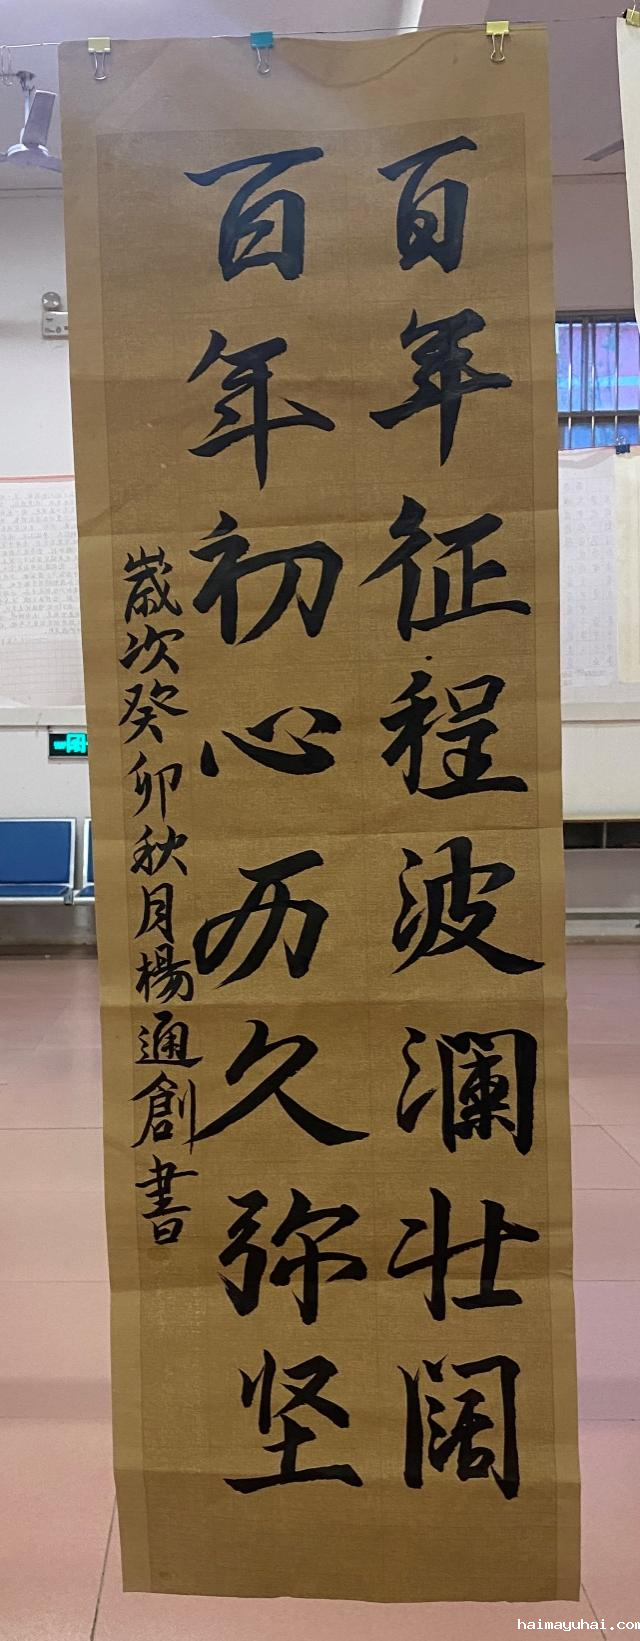 百年征程波澜壮阔
百年初心历久弥坚
歲次癸卯秋月楊通創書
haimayuhai.com